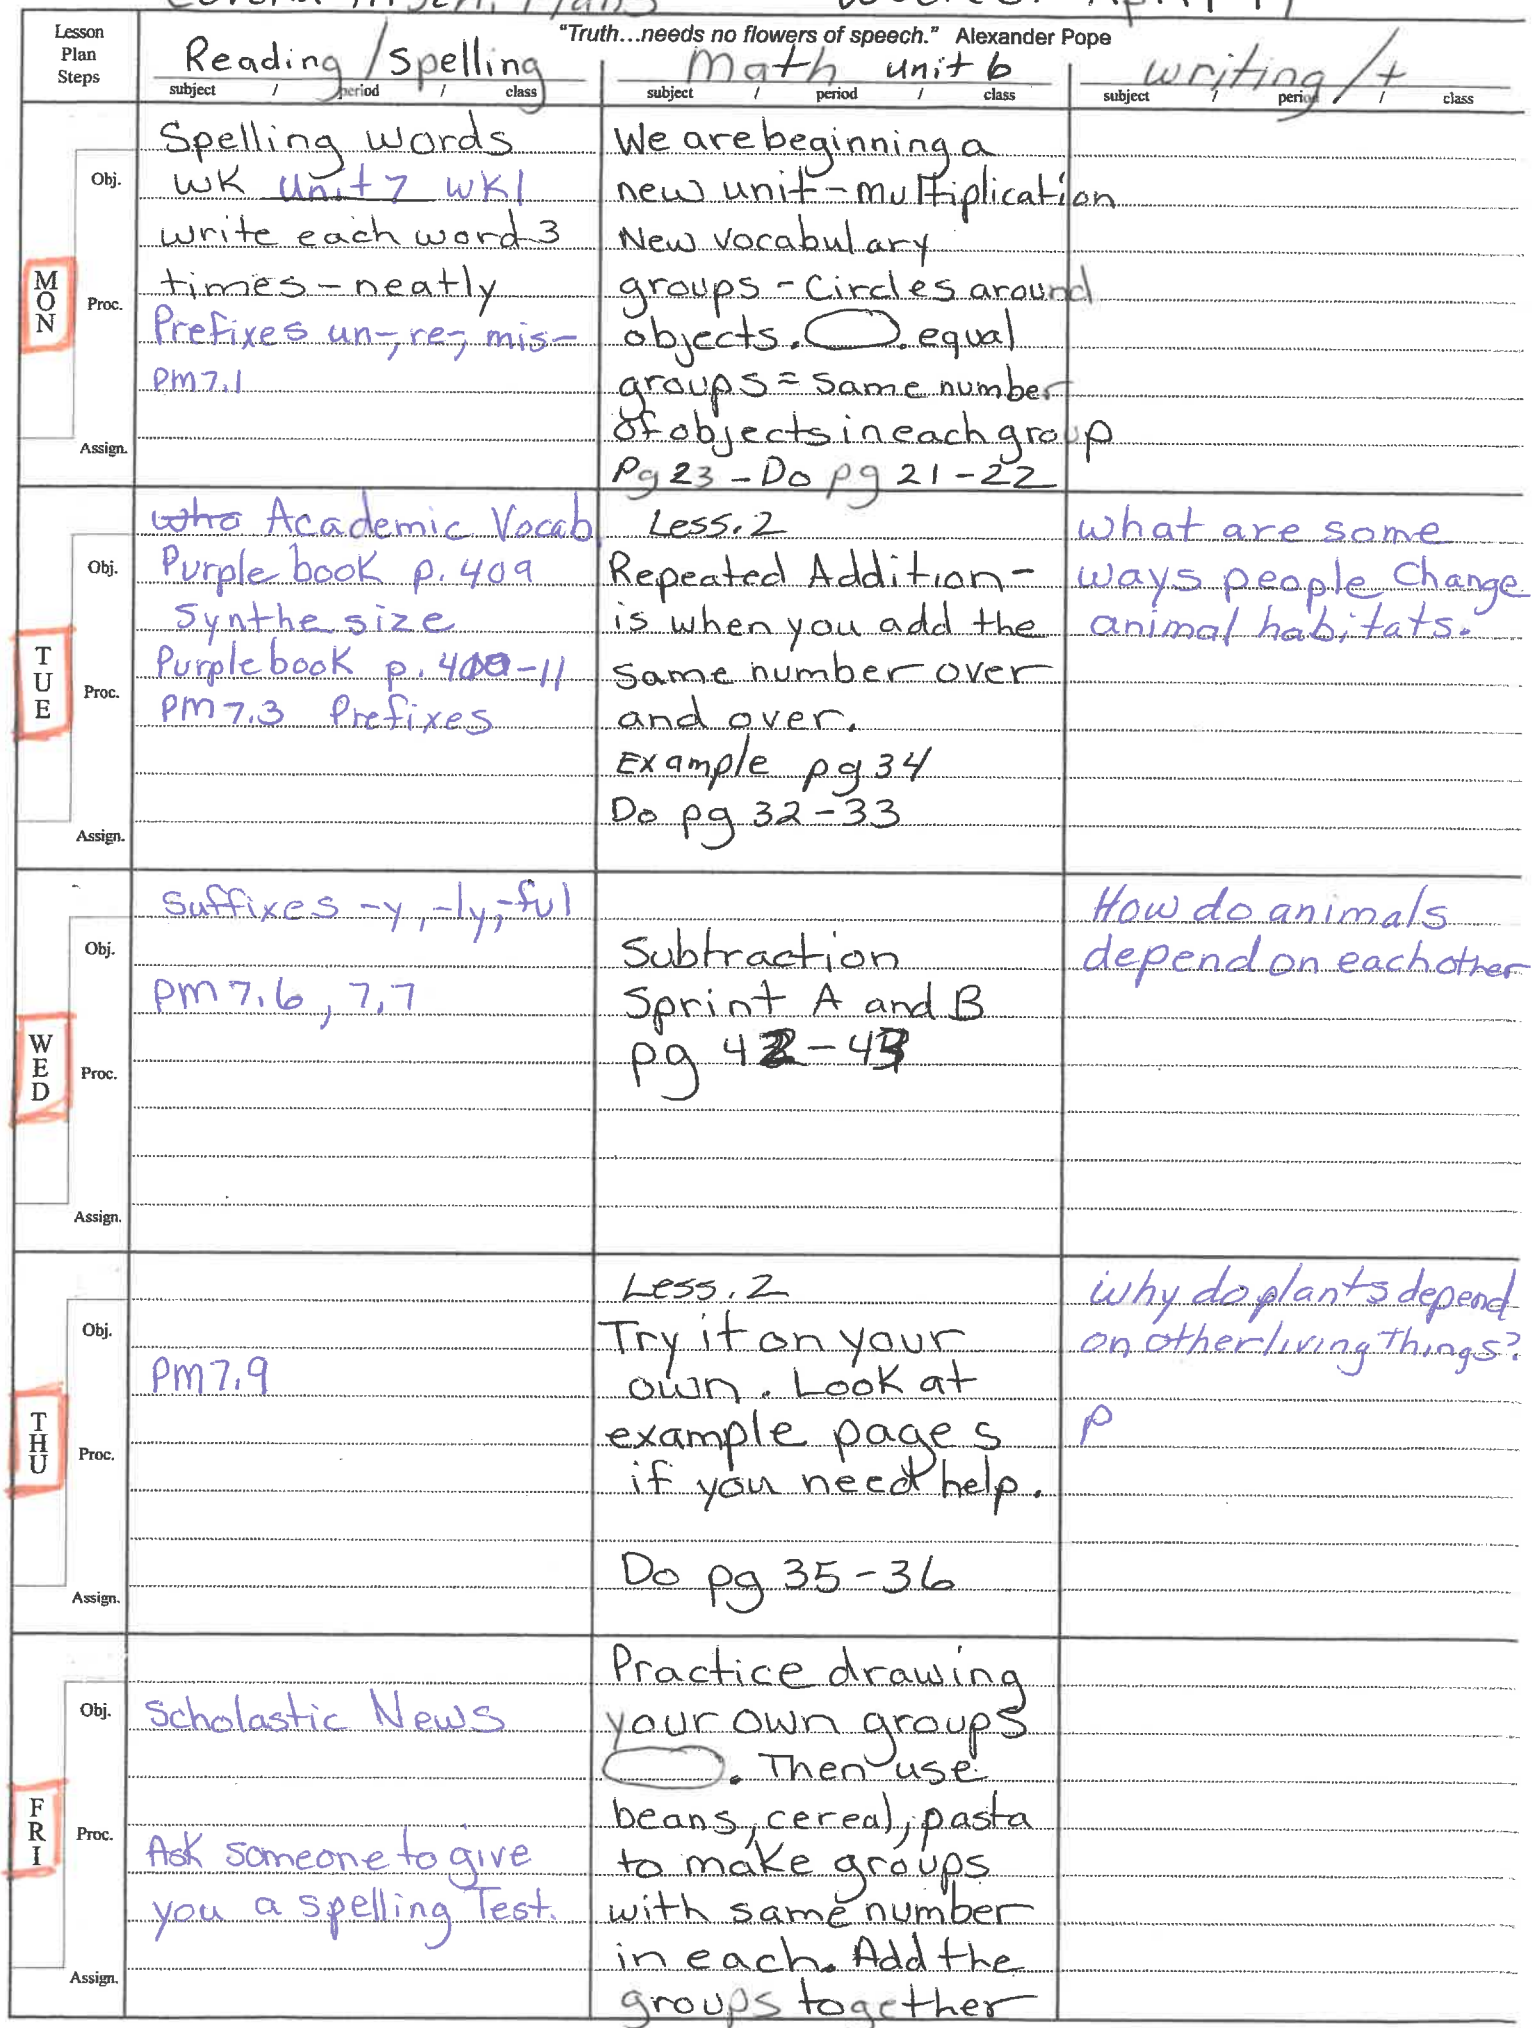 Lesson
Plan
Steps
"Truth...needs no flowers of speech." Alexander Pope
Reading/Spelling
subject / period / class
Math unit 6
subject / period / class
writing/+
subject / period / class
MON
Obj.
Proc.
Assign.
Spelling words
WK Unit 7 WK1
write each word 3
times - neatly
Prefixes un-, re-, mis-
PM7.1
We are beginning a
new unit - multiplication
New vocabulary
groups - Circles around
objects. . equal
groups = same number
of objects in each group
Pg 23 - Do pg 21-22
TUE
Obj.
Proc.
Assign.
who Academic Vocab
Purple book p. 409
Synthesize
Purple book p. -11
PM7.3 Prefixes
Less. 2
Repeated Addition -
is when you add the
same number over
and over.
Example pg 34
Do pg 32-33
what are some
ways people Change
animal habitats.
WED
Obj.
Proc.
Assign.
Suffixes -y, -ly, -ful
PM7.6, 7.7
Subtraction
Sprint A and B
pg 42-43
How do animals
depend on each other
THU
Obj.
Proc.
Assign.
PM7.9
Less. 2
Try it on your
own. Look at
example pages
if you need help.
Do pg 35-36
why do plants depend
on other living Things?
p
FRI
Obj.
Proc.
Assign.
Scholastic News
Ask someone to give
you a spelling Test.
Practice drawing
your own groups
. Then use
beans, cereal, pasta
to make groups
with same number
in each. Add the
groups together